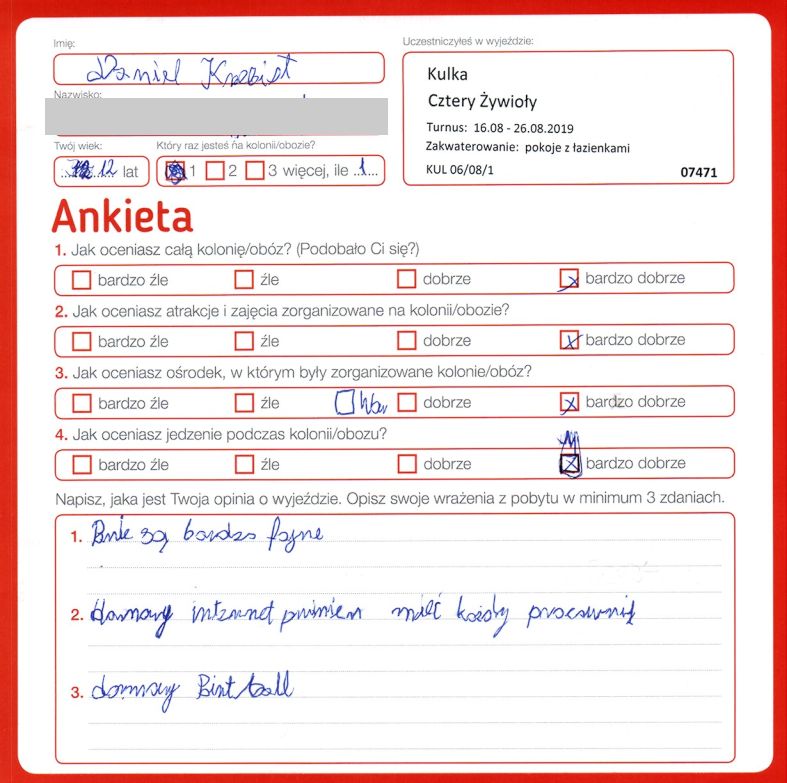 Imię:
Uczestniczyłeś w wyjeździe:
Daniel
Nazwisko:
Kulka
Cztery Żywioły
Turnus: 16.08 - 26.08.2019
Zakwaterowanie: pokoje z łazienkami
KUL 06/08/1 07471
Twój wiek: Który raz jesteś na kolonii/obozie?
12 lat 1 2 3 więcej, ile 1
Ankieta
1. Jak oceniasz całą kolonię/obóz? (Podobało Ci się?)
bardzo źle źle dobrze bardzo dobrze
2. Jak oceniasz atrakcje i zajęcia zorganizowane na kolonii/obozie?
bardzo źle źle dobrze bardzo dobrze
3. Jak oceniasz ośrodek, w którym były zorganizowane kolonie/obóz?
bardzo źle źle dobrze bardzo dobrze
4. Jak oceniasz jedzenie podczas kolonii/obozu?
bardzo źle źle dobrze bardzo dobrze
Napisz, jaka jest Twoja opinia o wyjeździe. Opisz swoje wrażenia z pobytu w minimum 3 zdaniach.
1. są bardzo fajne
2. internet mieć każdy
3.